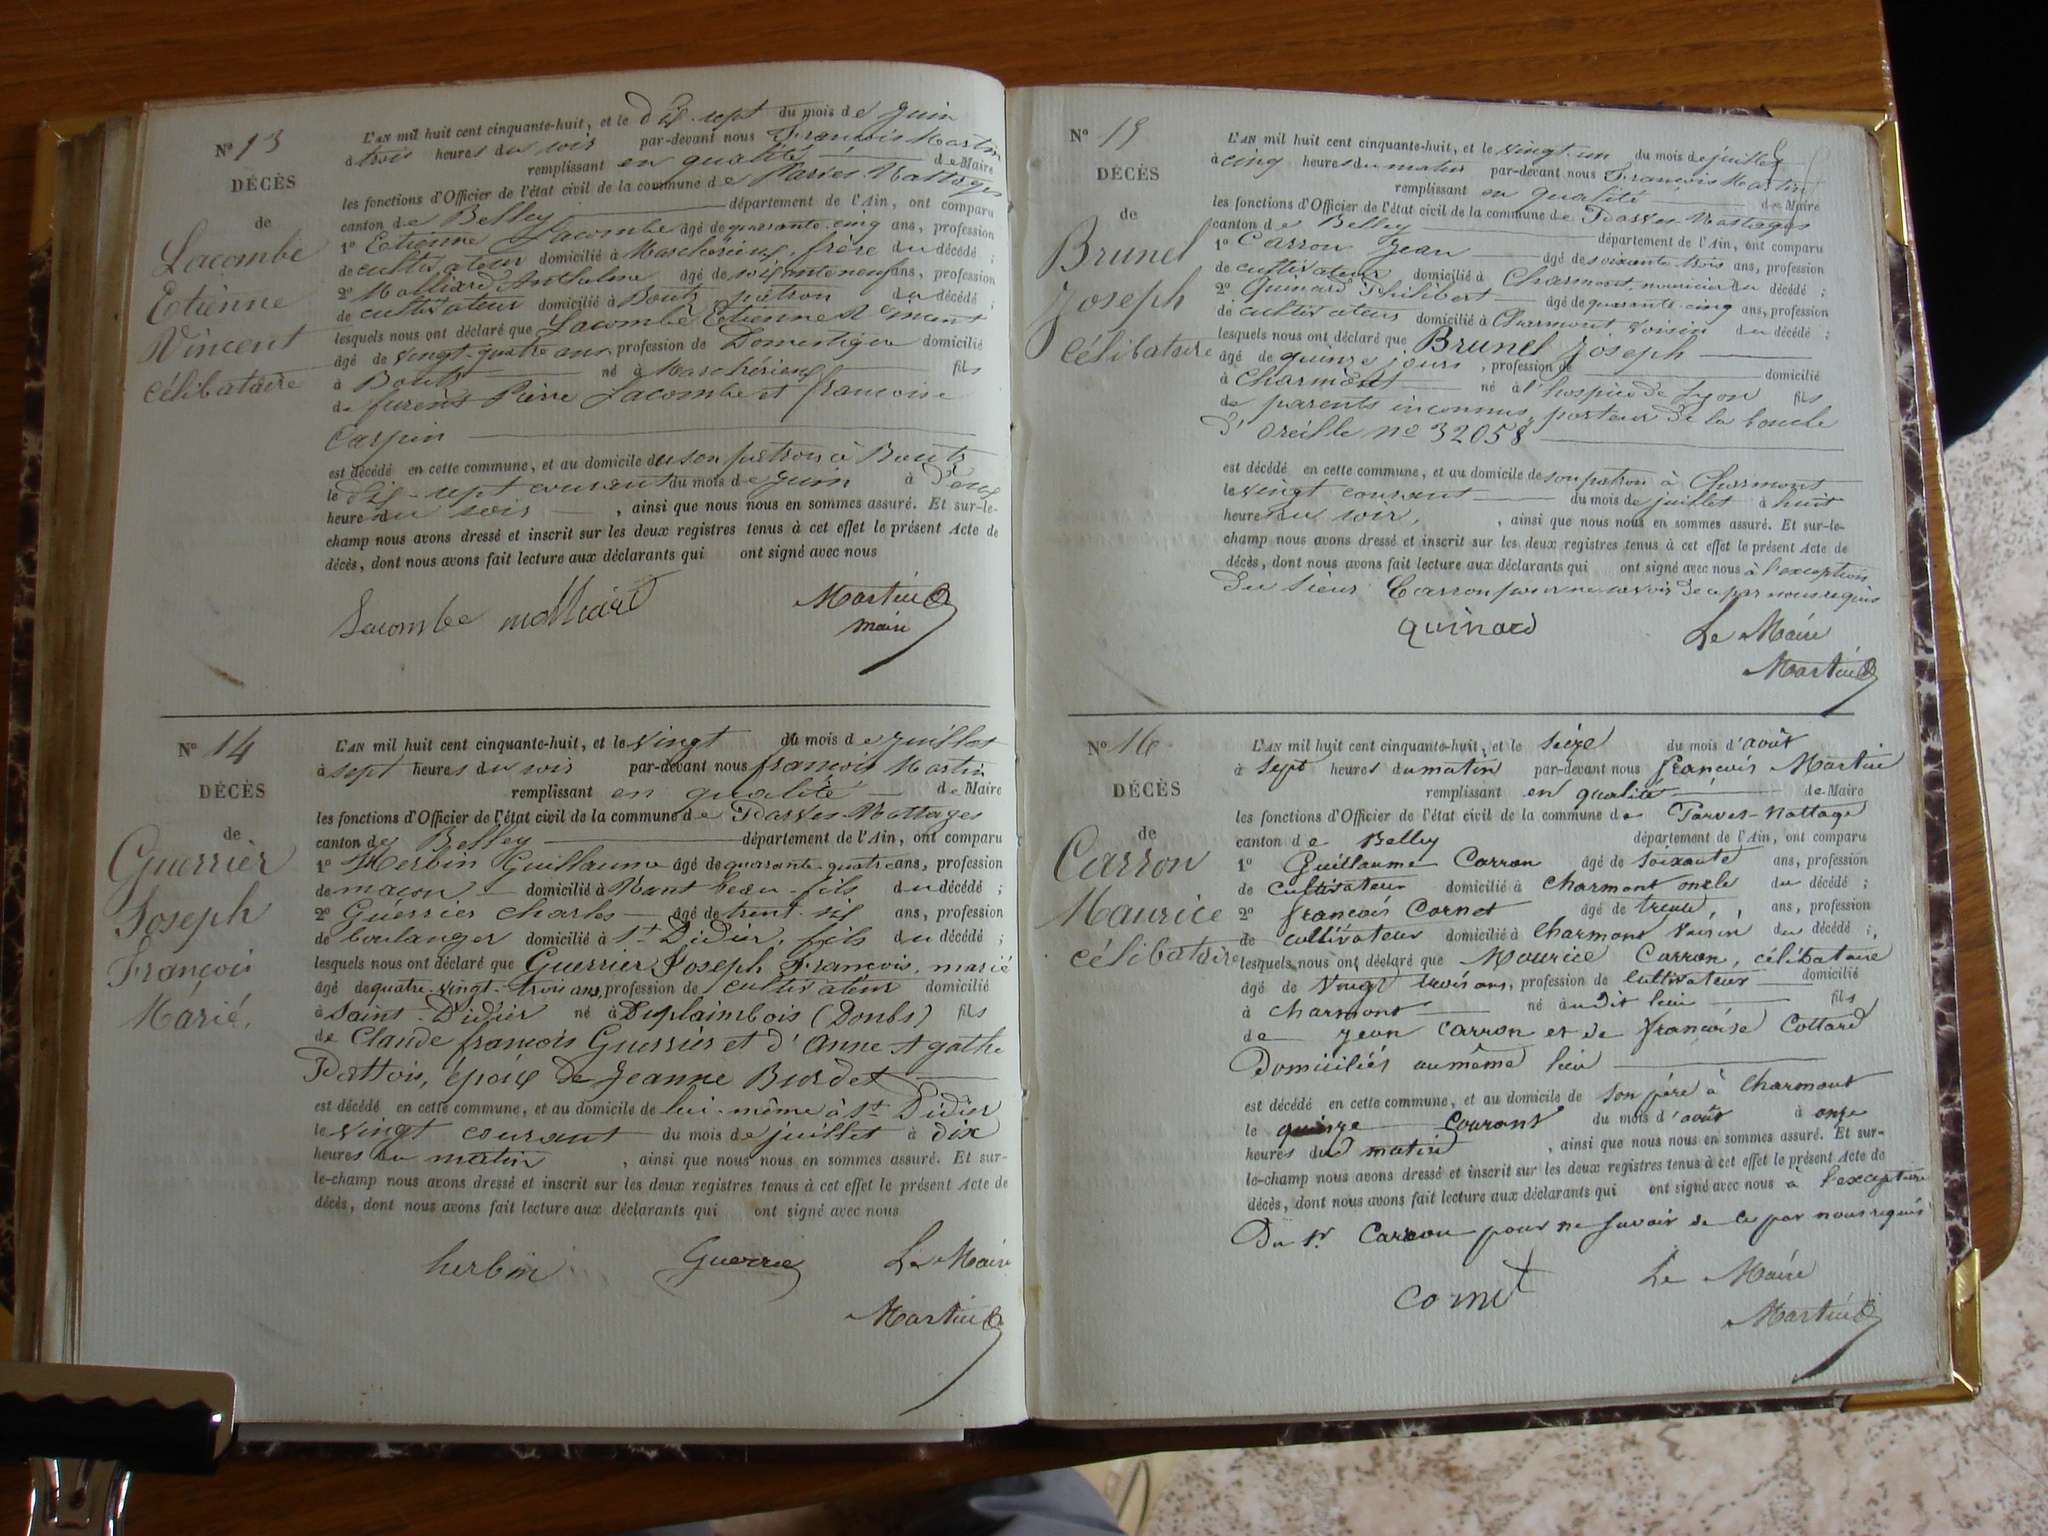 N° 13
DÉCÈS
de
Lacombe
Etiènne
Vincent
célibataire
L'AN mil huit cent cinquante-huit, et le dix-sept du mois de Juin
à trois heures du soir par-devant nous François Martin
remplissant en qualité de Maire
les fonctions d'Officier de l'état civil de la commune de Parves-Nattages
canton de Belley département de l'Ain, ont comparu
1° Etiènne Lacombe âgé de quarante-cinq ans, profession
de cultivateur domicilié à frère du décédé ;
2° Anthelme âgé de soixante neuf ans, profession
de cultivateur domicilié à patron du décédé ;
lesquels nous ont déclaré que Lacombe Etienne Vincent
âgé de vingt-quatre ans, profession de Domestique domicilié
à né à fils
de furent Pierre Lacombe et françoise
Carpin
est décédé en cette commune, et au domicile de son patron à
le dix-sept courant du mois de Juin à Deux
heures du soir , ainsi que nous nous en sommes assuré. Et sur-le-
champ nous avons dressé et inscrit sur les deux registres tenus à cet effet le présent Acte de
décès, dont nous avons fait lecture aux déclarants qui ont signé avec nous
Lacombe molliard Martin
maire
N° 14
DÉCÈS
de
Guerrier
Joseph
François
Marié,
L'AN mil huit cent cinquante-huit, et le vingt du mois de Juillet
à sept heures du soir par-devant nous françois Martin
remplissant en qualité de Maire
les fonctions d'Officier de l'état civil de la commune de Parves Nattages
canton de Belley département de l'Ain, ont comparu
1° Herbin Guillaume âgé de quarante-quatre ans, profession
de maçon domicilié à Nant beau-fils du décédé ;
2° Guérrier Charles âgé de trent-six ans, profession
de boulanger domicilié à St Didier, fils du décédé ;
lesquels nous ont déclaré que Guerrier Joseph François, marié
âgé de quatre-vingt-trois ans, profession de cultivateur domicilié
à Saint-Didier né à Duplaimbois (Doubs) fils
de Claude françois Guerrier et d'Anne Agathe
époux de Jeanne Burdet
est décédé en cette commune, et au domicile de lui-même à St Didier
le vingt courant du mois de juillet à dix
heures du matin , ainsi que nous nous en sommes assuré. Et sur-
le-champ nous avons dressé et inscrit sur les deux registres tenus à cet effet le présent Acte de
décès, dont nous avons fait lecture aux déclarants qui ont signé avec nous
herbin Guerrie Le Maire
Martin
N° 15
DÉCÈS
de
Brunel
Joseph
célibataire
L'AN mil huit cent cinquante-huit, et le vingt-un du mois de juillet
à cinq heures du matin par-devant nous François Martin
remplissant en qualité de Maire
les fonctions d'Officier de l'état civil de la commune de Parves Nattages
canton de Belley département de l'Ain, ont comparu
1° Carron Jean âgé de soixante-trois ans, profession
de cultivateur domicilié à Charmont, nourricier du décédé ;
2° Quinard Philibert âgé de quarante-cinq ans, profession
de cultivateur domicilié à Charmont, voisin du décédé ;
lesquels nous ont déclaré que Brunel Joseph
âgé de quinze jours , profession de domicilié
à Charmont né à l'hospice de Lyon fils
de parents inconnus, porteur de la boucle
d'oreille n° 32058
est décédé en cette commune, et au domicile de son patron à Charmont
le vingt courant du mois de juillet à huit
heures du soir, , ainsi que nous nous en sommes assuré. Et sur-le-
champ nous avons dressé et inscrit sur les deux registres tenus à cet effet le présent Acte de
décès, dont nous avons fait lecture aux déclarants qui ont signé avec nous à l'exception
du sieur Carron pour ne savoir de ce par nous requis
Quinard Le Maire
Martin
N° 16
DÉCÈS
de
Carron
Maurice
célibataire
L'AN mil huit cent cinquante-huit, et le seize du mois d'août
à sept heures du matin par-devant nous françois Martin
remplissant en qualité de Maire
les fonctions d'Officier de l'état civil de la commune de Parves-Nattage
canton de Belley département de l'Ain, ont comparu
1° Guillaume Carron âgé de soixante ans, profession
de cultivateur domicilié à Charmont oncle du décédé ;
2° françois Cornet âgé de trente, ans, profession
de cultivateur domicilié à Charmont voisin du décédé ;
lesquels nous ont déclaré que Maurice Carron, célibataire
âgé de vingt trois ans, profession de cultivateur domicilié
à Charmont né au dit lieu fils
de Jean Carron et de françoise Collard
Domiciliés au même lieu
est décédé en cette commune, et au domicile de son père à Charmont
le quinze courant du mois d'août à onze
heures du matin , ainsi que nous nous en sommes assuré. Et sur-
le-champ nous avons dressé et inscrit sur les deux registres tenus à cet effet le présent Acte de
décès, dont nous avons fait lecture aux déclarants qui ont signé avec nous à l'exception
Du sr Carron pour ne savoir de ce par nous requis
cornet Le Maire
Martin